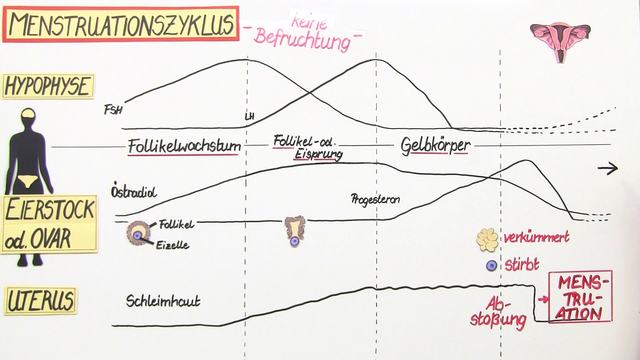 MENSTRUATIONSZYKLUS
- keine
Befruchtung -
HYPOPHYSE
FSH
LH
Follikelwachstum
Follikel- od.
Eisprung
Gelbkörper
Östradiol
Progesteron
EIERSTOCK
od. OVAR
Follikel
Eizelle
verkümmert
stirbt
UTERUS
Schleimhaut
Ab-
stoßung
MENS-
TRU-
ATION